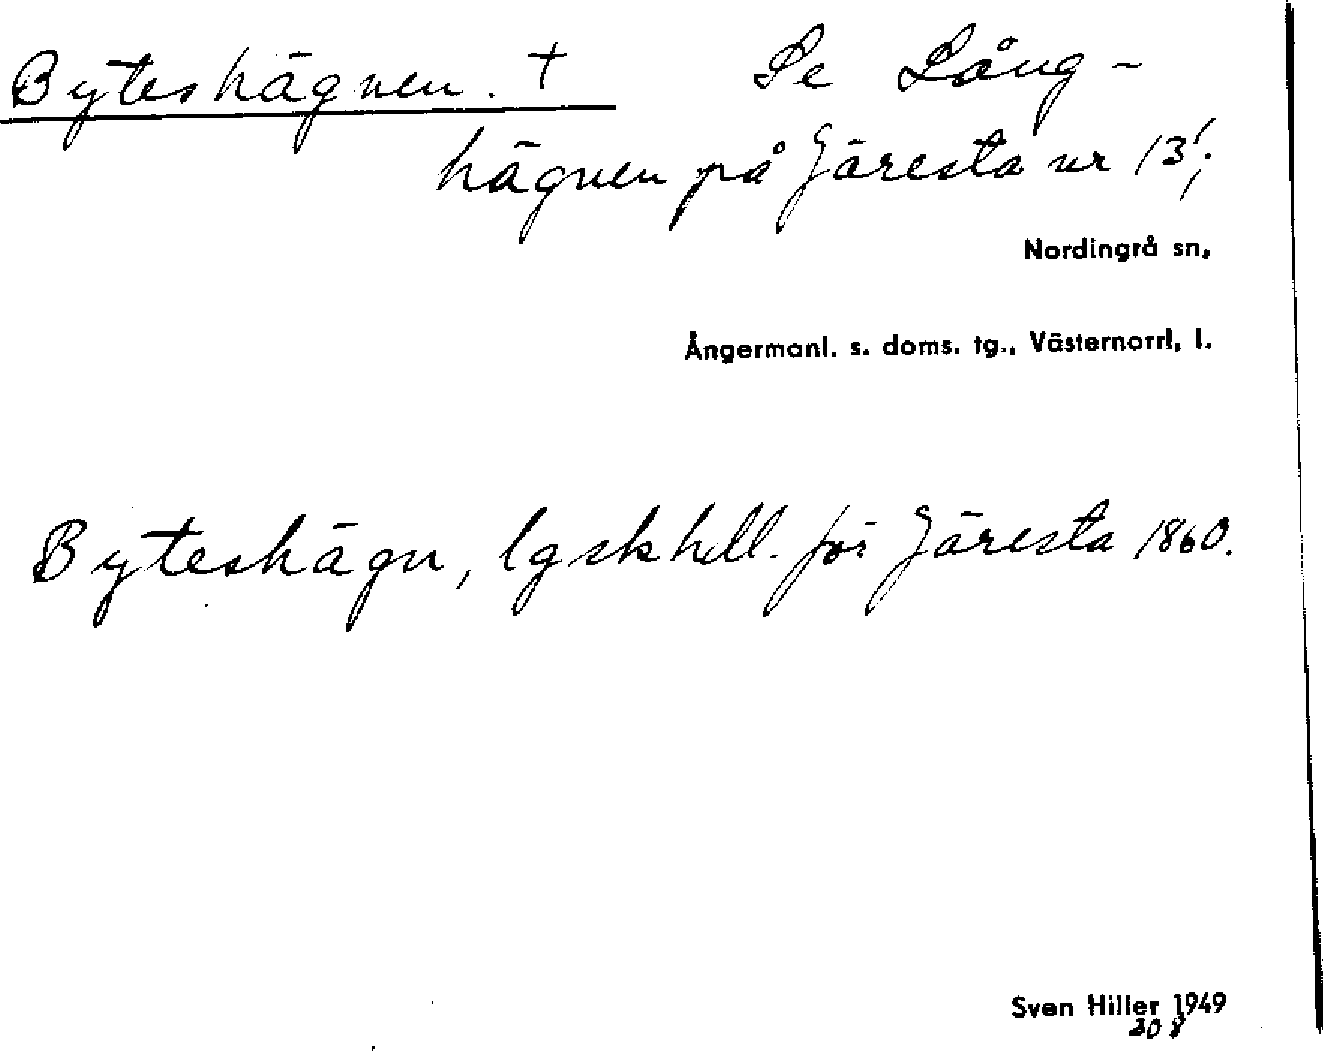 Byteshägnen. + Se Lång-
hägnen på Järesta nr 13';
Nordingrå sn,
Ångermanl. s. doms. tg., Västernorrl. l.
Byteshägn, lgskhdl. för Järesta 1860.
Sven Hiller 1949
308